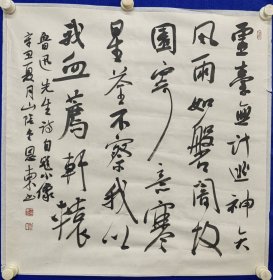 靈臺無計逃神矢
風雨如磐闇故
園寄意寒
星荃不察我以
我血薦軒轅
魯迅先生詩自題小像
辛丑夏月山阴